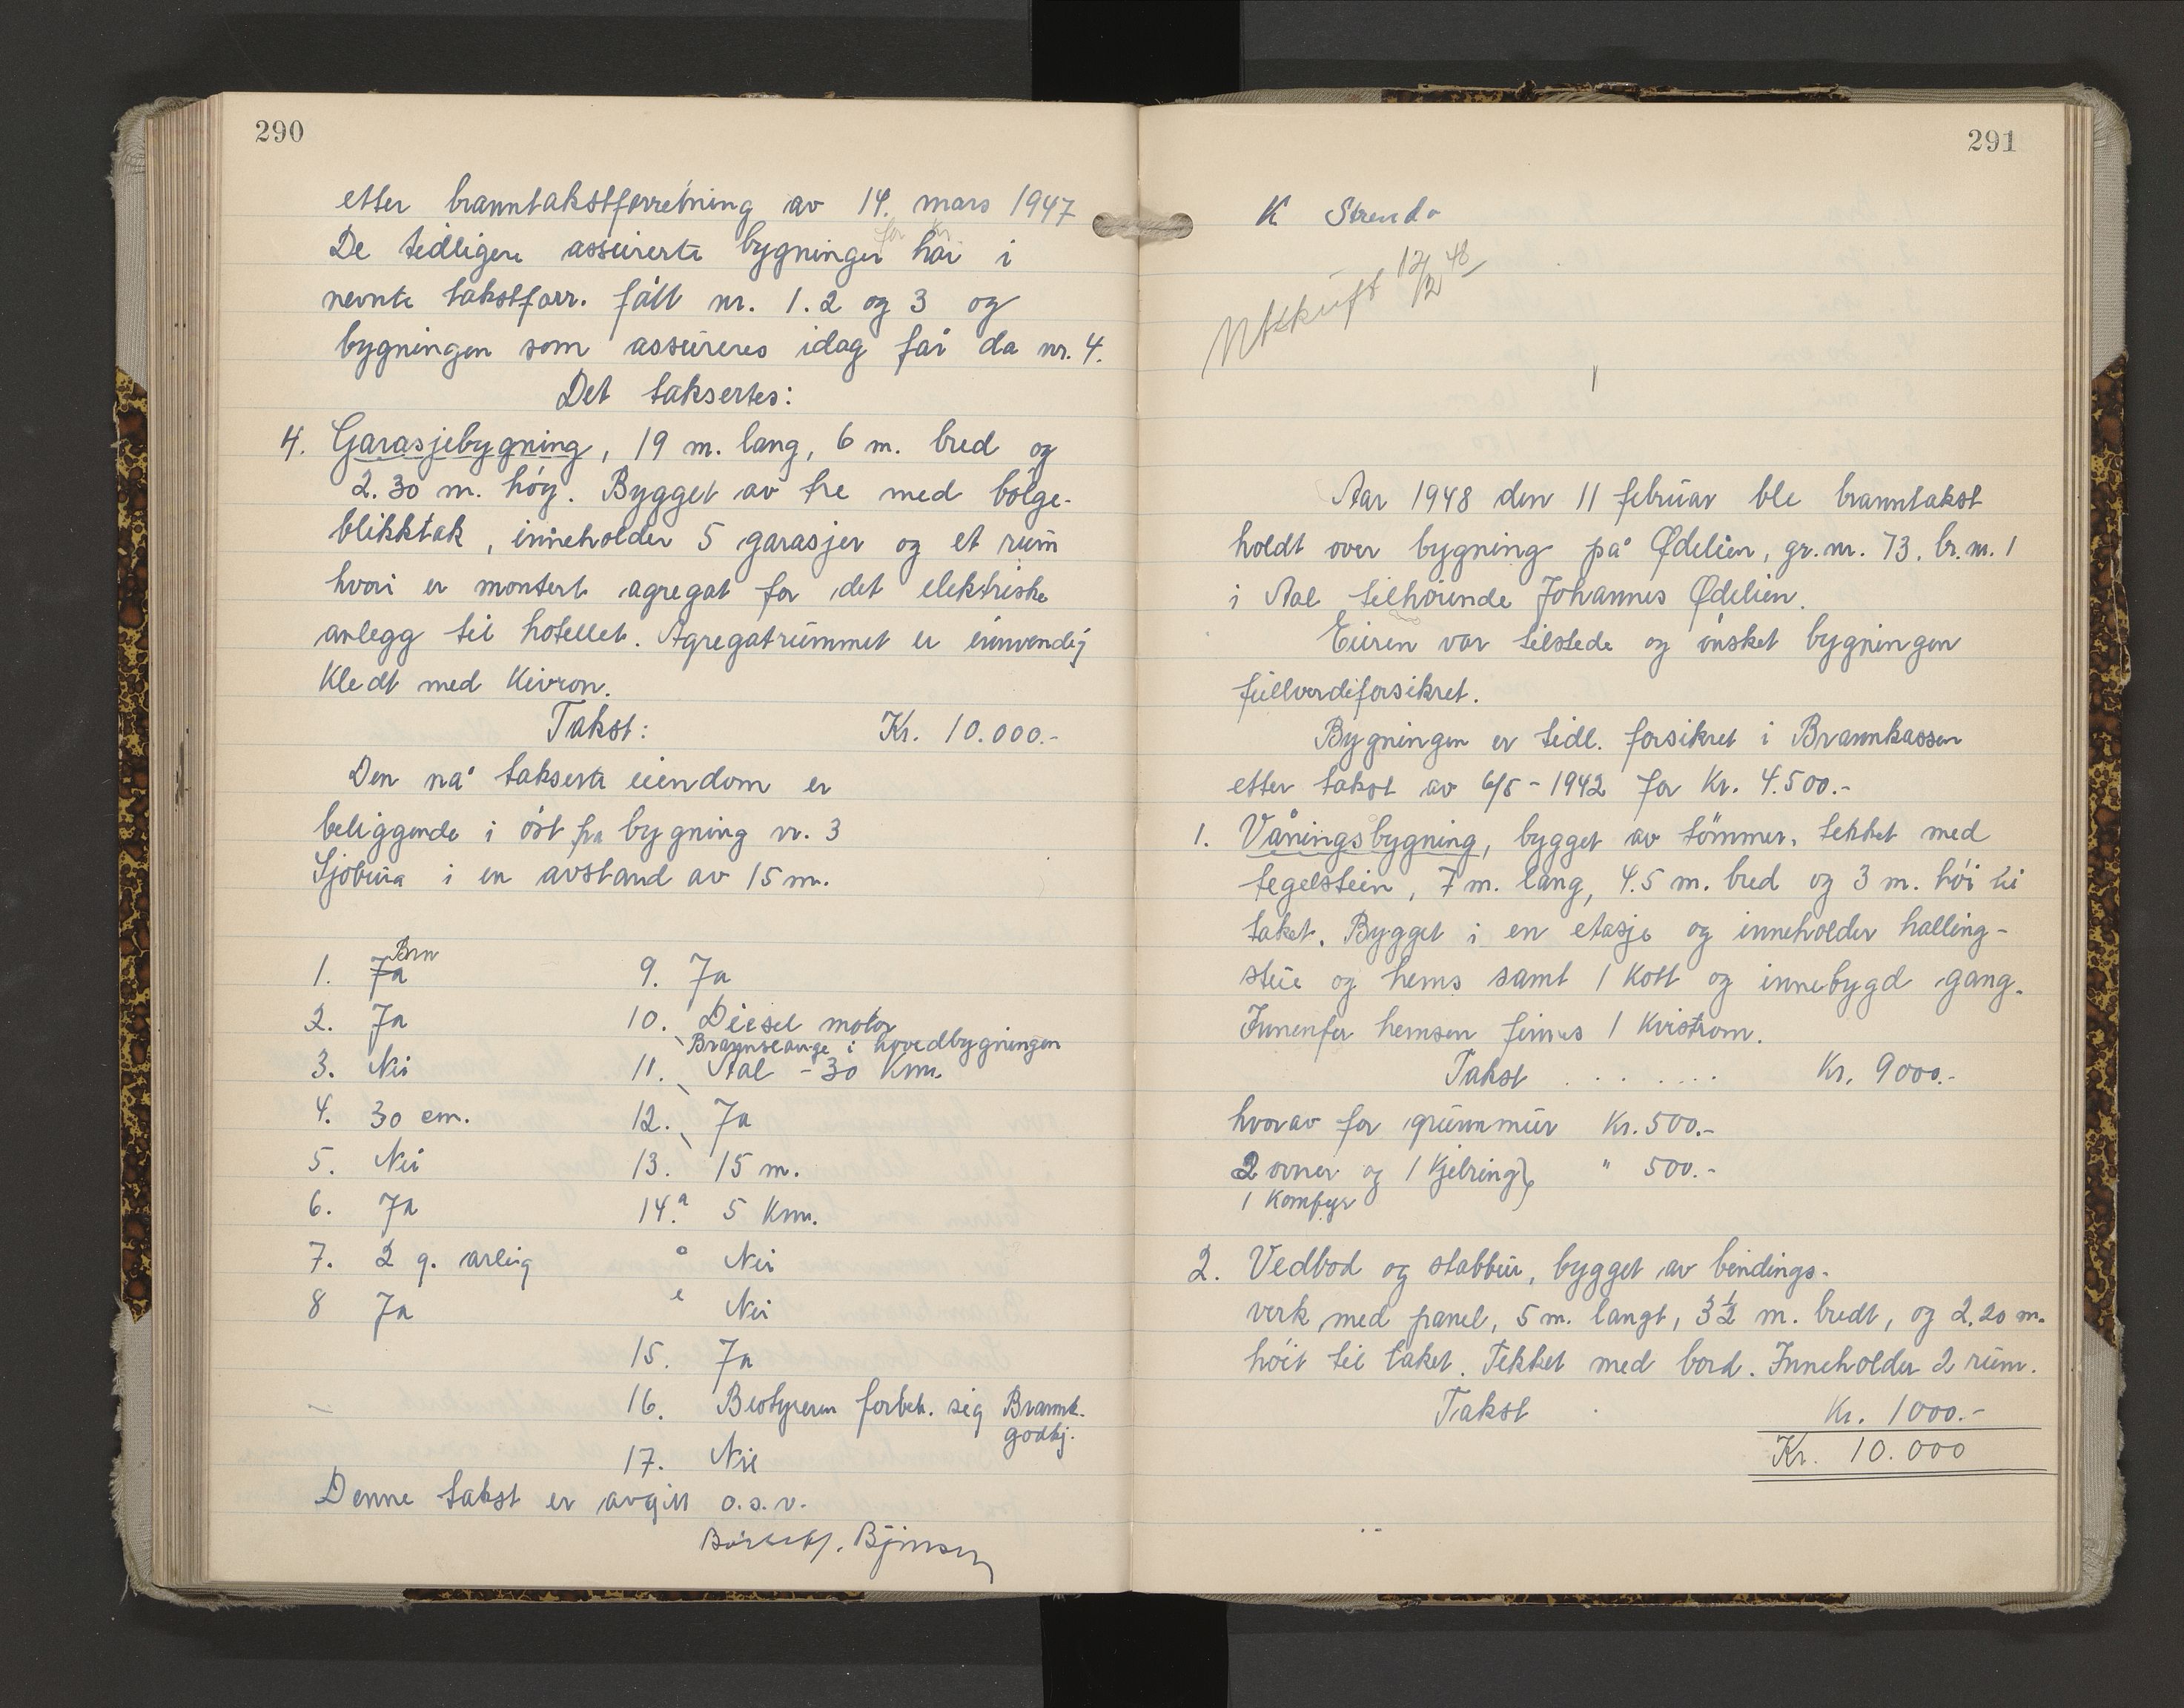 290
etter branntakstforretning av 14. mars 1947
De tidligere assurerte bygninger har i
nevnte takstforr. fått nr. 1. 2 og 3 og
bygningen som assureres idag får da nr. 4.
Det taksertes:
4. Garasjebygning, 19 m. lang, 6 m. bred og
2.30 m. høy. Bygget av tre med bølge-
blikktak, inneholder 5 garasjer og et rum
hvori er montert agregat for det elektriske
anlegg til hotellet. Agregatrummet er innvendig
kledt med Kivron.
Takst: Kr. 10.000.-
Den nå takserte eiendom er
beliggende i øst fra bygning nr. 3
Sjøbua i en avstand av 15 m.
1. Ja Brn
2. Ja
3. Nei
4. 30 cm.
5. Nei
6. Ja
7. 2 g. årlig
8 Ja
9. Ja
10. Diesel motor
Brannslange i hovedbygningen
11. Aal - 30 Km.
12. Ja
13. 15 m.
14. a 5 Km.
o Nei
e Nei
15. Ja
16. Bestyreren forbeh. sig Brannk.
godkj.
17. Nei
Denne takst er avgitt o.s.v.
291
K Strand
Utskrift 12/2 48
Aar 1948 den 11 februar ble branntakst
holdt over bygning på Ødelien, gr. nr. 73. br. nr. 1
i Aal tilhørende Johannes Ødelien.
Eieren var tilstede og ønsket bygningen
fullverdiforsikret.
Bygningen er tidl. forsikret i Brannkassen
etter takst av 6/5 - 1942 for Kr. 4.500.-
1. Våningsbygning, bygget av tømmer, tekket med
tegelstein, 7 m. lang, 4.5 m. bred og 3 m. høi til
taket. Bygget i en etasje og inneholder halling-
stue og hems samt 1 kott og innebygd gang.
Innenfor hemsen finnes 1 kvistrom.
Takst . . . . . . Kr. 9000.-
hvorav for grunnmur Kr. 500.-
2 ovner og 1 Kjelring " 500.-
1 Komfyr
2. Vedbod og stabbur, bygget av bindings-
verk med panel, 5 m. langt, 3 1/2 m. bredt, og 2.20 m.
høit til taket. Tekket med bord. Inneholder 2 rum.
Takst . Kr. 1000.-
Kr. 10.000